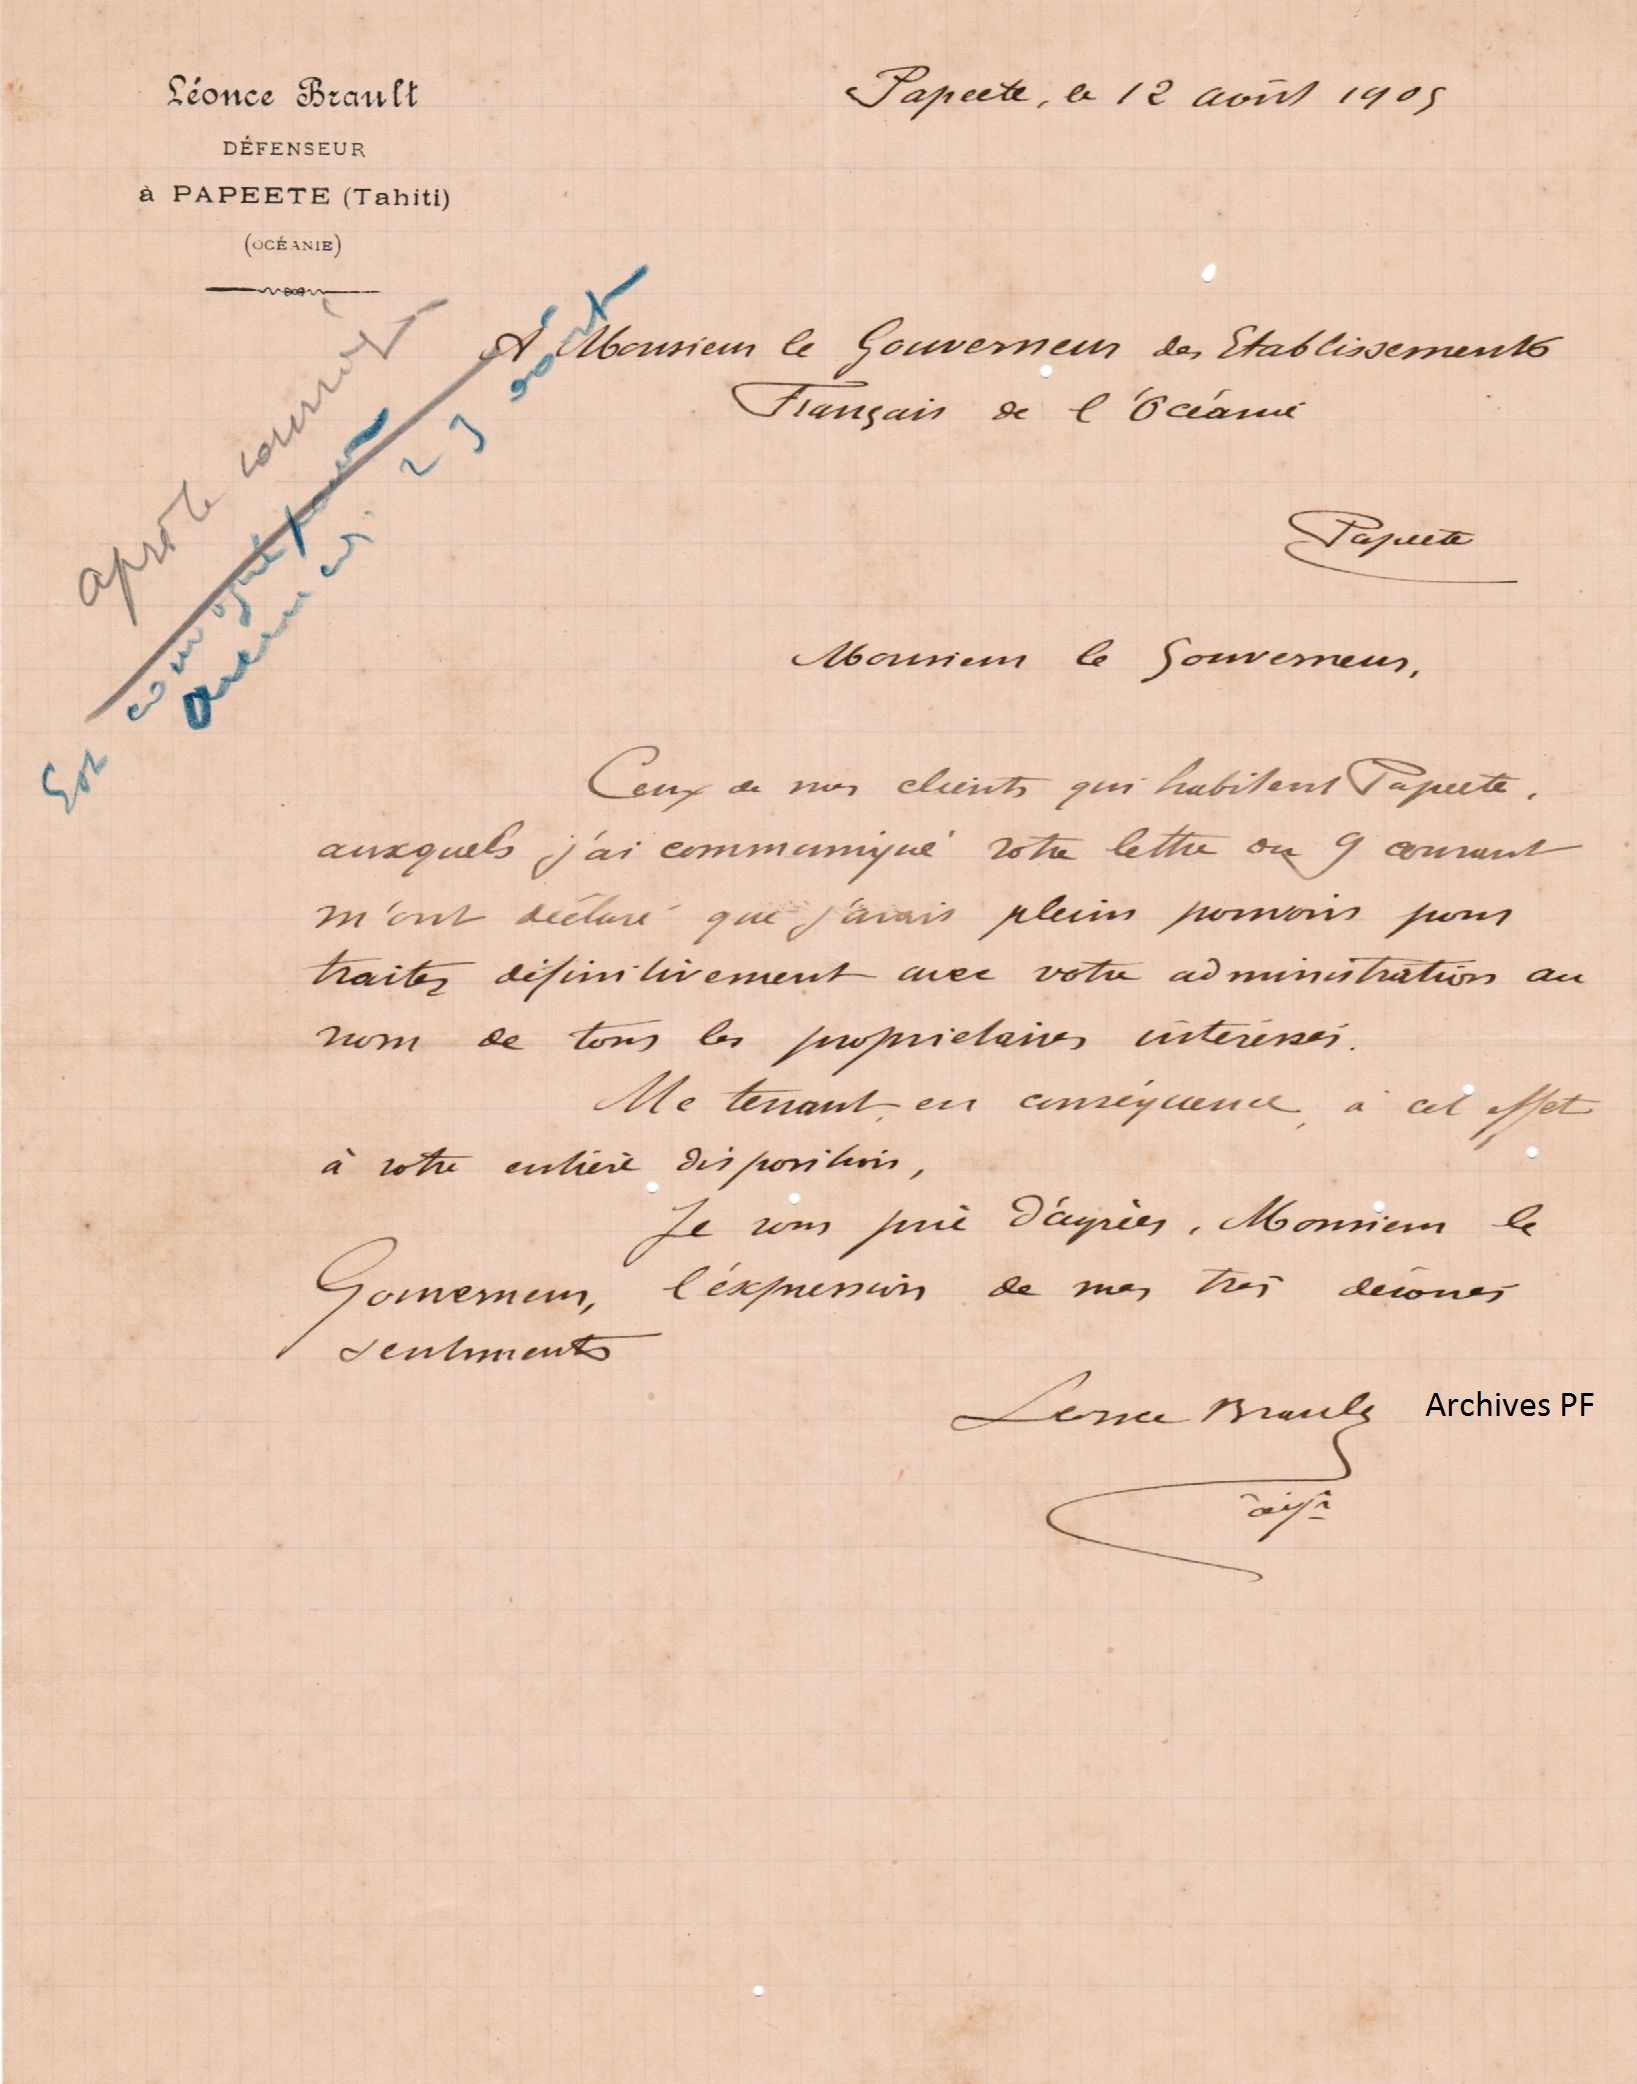 Léonce Brault
DÉFENSEUR
à PAPEETE (Tahiti)
(OCÉANIE)
Papeete, le 12 août 1905
après le courrier
23 août
A Monsieur le Gouverneur des Etablissements
Français de l'Océanie
Papeete
Monsieur le Gouverneur,
Ceux de mes clients qui habitent Papeete,
auxquels j'ai communiqué votre lettre du 9 courant
m'ont déclaré que j'avais pleins pouvoirs pour
traiter définitivement avec votre administration au
nom de tous les propriétaires intéressés.
Me tenant, en conséquence, à cet effet
à votre entière disposition,
Je vous prie d'agréer, Monsieur le
Gouverneur, l'expression de mes très dévoués
sentiments
Léonce Brault
Archives PF